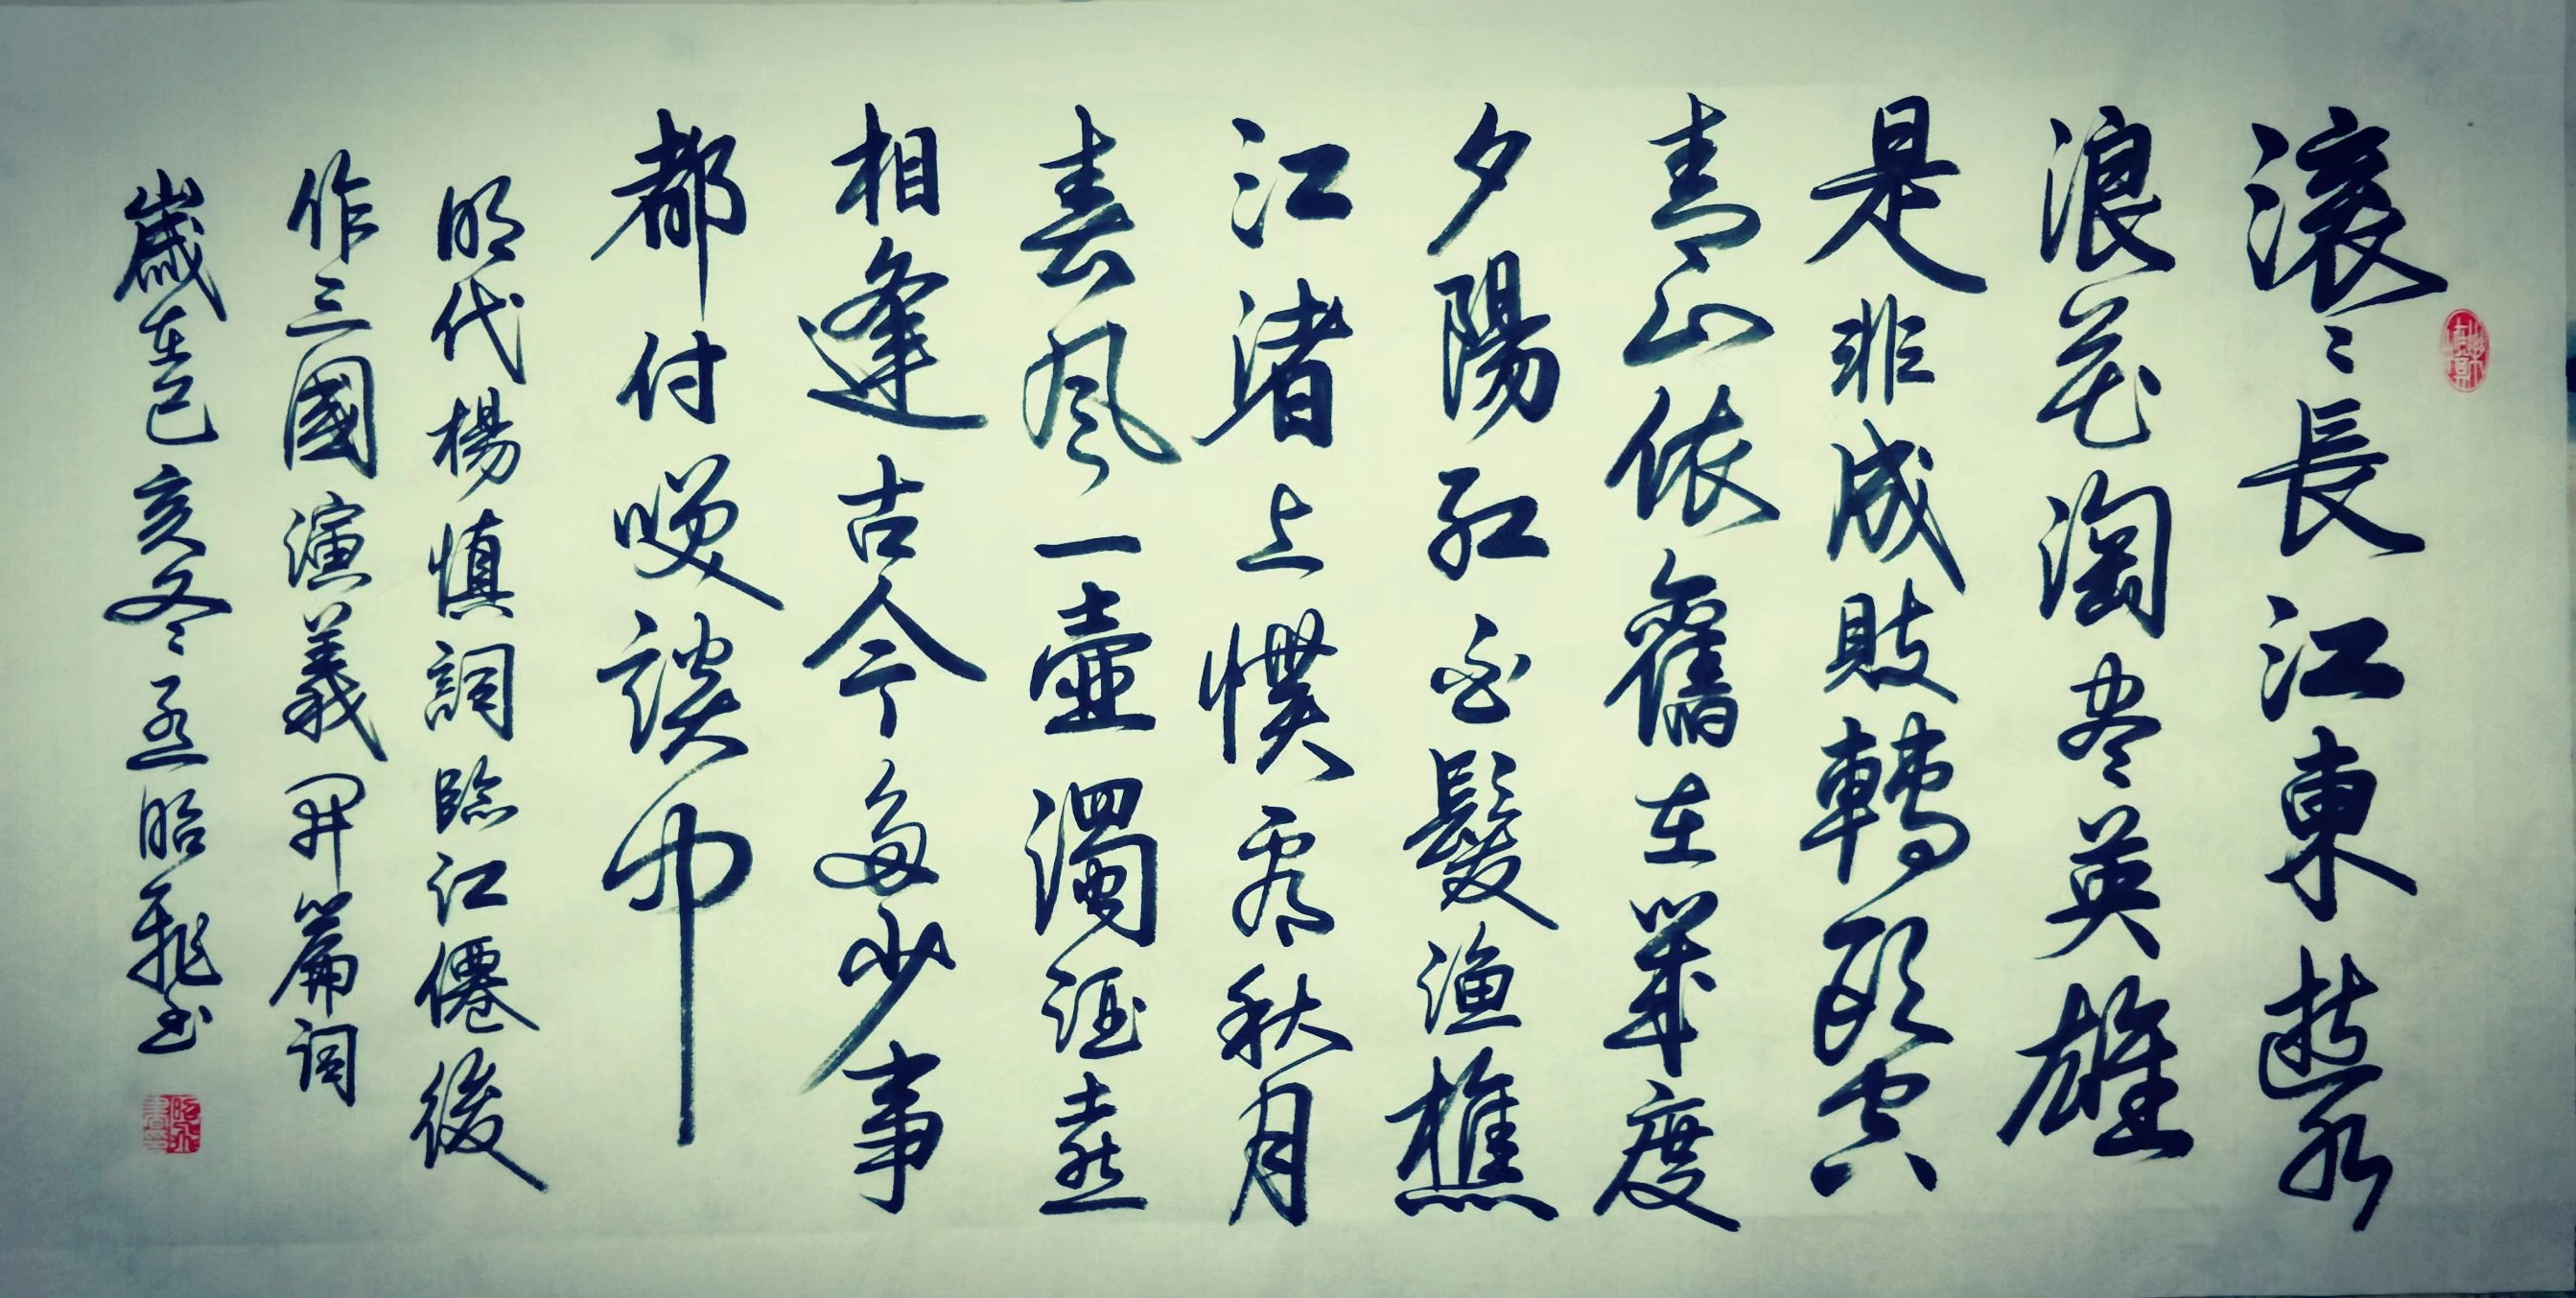 滾〻長江東逝水
浪花淘尽英雄
是非成敗轉頭空
青山依舊在幾度
夕陽紅白髮漁樵
江渚上慣看秋月
春風一壺濁酒喜
相逢古今多少事
都付唉談中
明代楊慎詞臨江僊後
作三國演義開篇詞
歲在己亥冬孟昭飛书